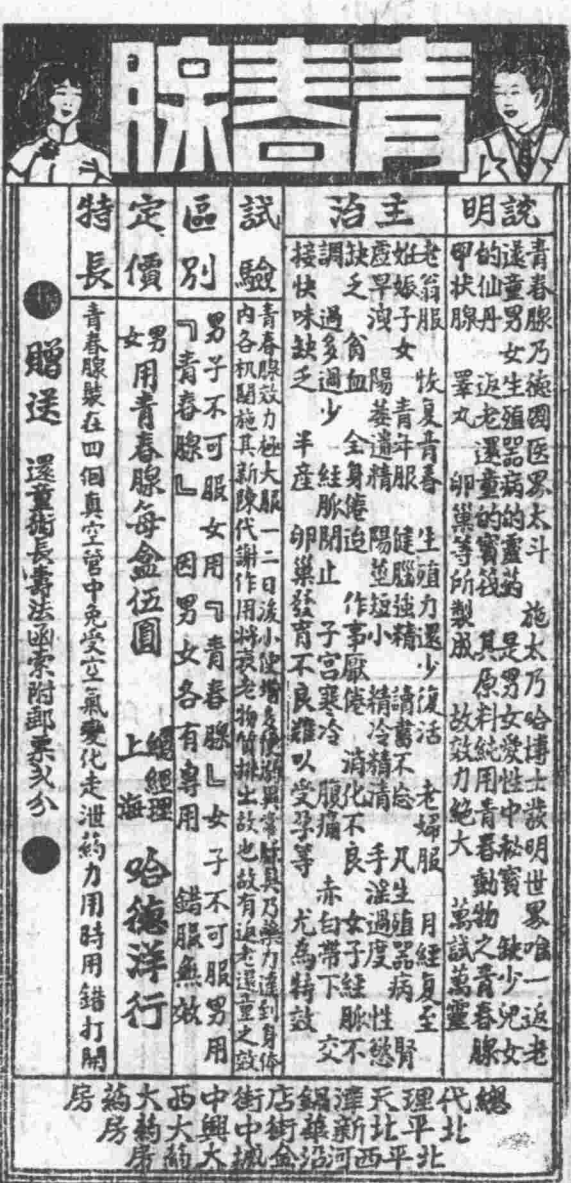 青春腺
說明
青春腺乃德國医界太斗 施太乃哈博士發明世界唯一返老
還童男女生殖器病的靈药 是男女愛性中秘寳 缺少兒女
的仙丹 返老還童的寳筏 其原料純用青春動物之青春腺
甲状腺 睪丸 卵巢等所製成 故效力絕大 萬試萬靈
主治
老翁服 恢复青春 生殖力還少復活 老婦服 月經复至
妊娠子女 青年服 健腦強精 讀書不忘 凡生殖器病 腎
虚早洩 陽萎遺精 陽莖短小 精冷精清 手淫過度 性慾
缺乏 貧血 全身倦迨 作事厭倦 消化不良 女子經脈不
調 過多過少 經脈閉止 子宮寒冷 腹痛 赤白帶下 交
接快味缺乏 半産 卵巢發育不良難以受孕等 尤為特效
試驗
青春腺效力極大服一二日後小便增多便發異常脈具乃藥力達到身体
內各机関施其新陳代謝作用將衰老物質排出故也故有返老還童之效
區別
男子不可服女用『青春腺』女子不可服男用
『青春腺』 因男女各有專用 錯服無效
定價
男女用青春腺每盒伍圓
總經理
上海
哈德洋行
特長
青春腺裝在四個真空管中免受空氣變化走泄药力用時用錯打開
贈送 還童術長壽法函索附郵票弍分
總代理天津鍋店街中西大药房
北平北新華街中興大药房
北平西河沿盒城大药房